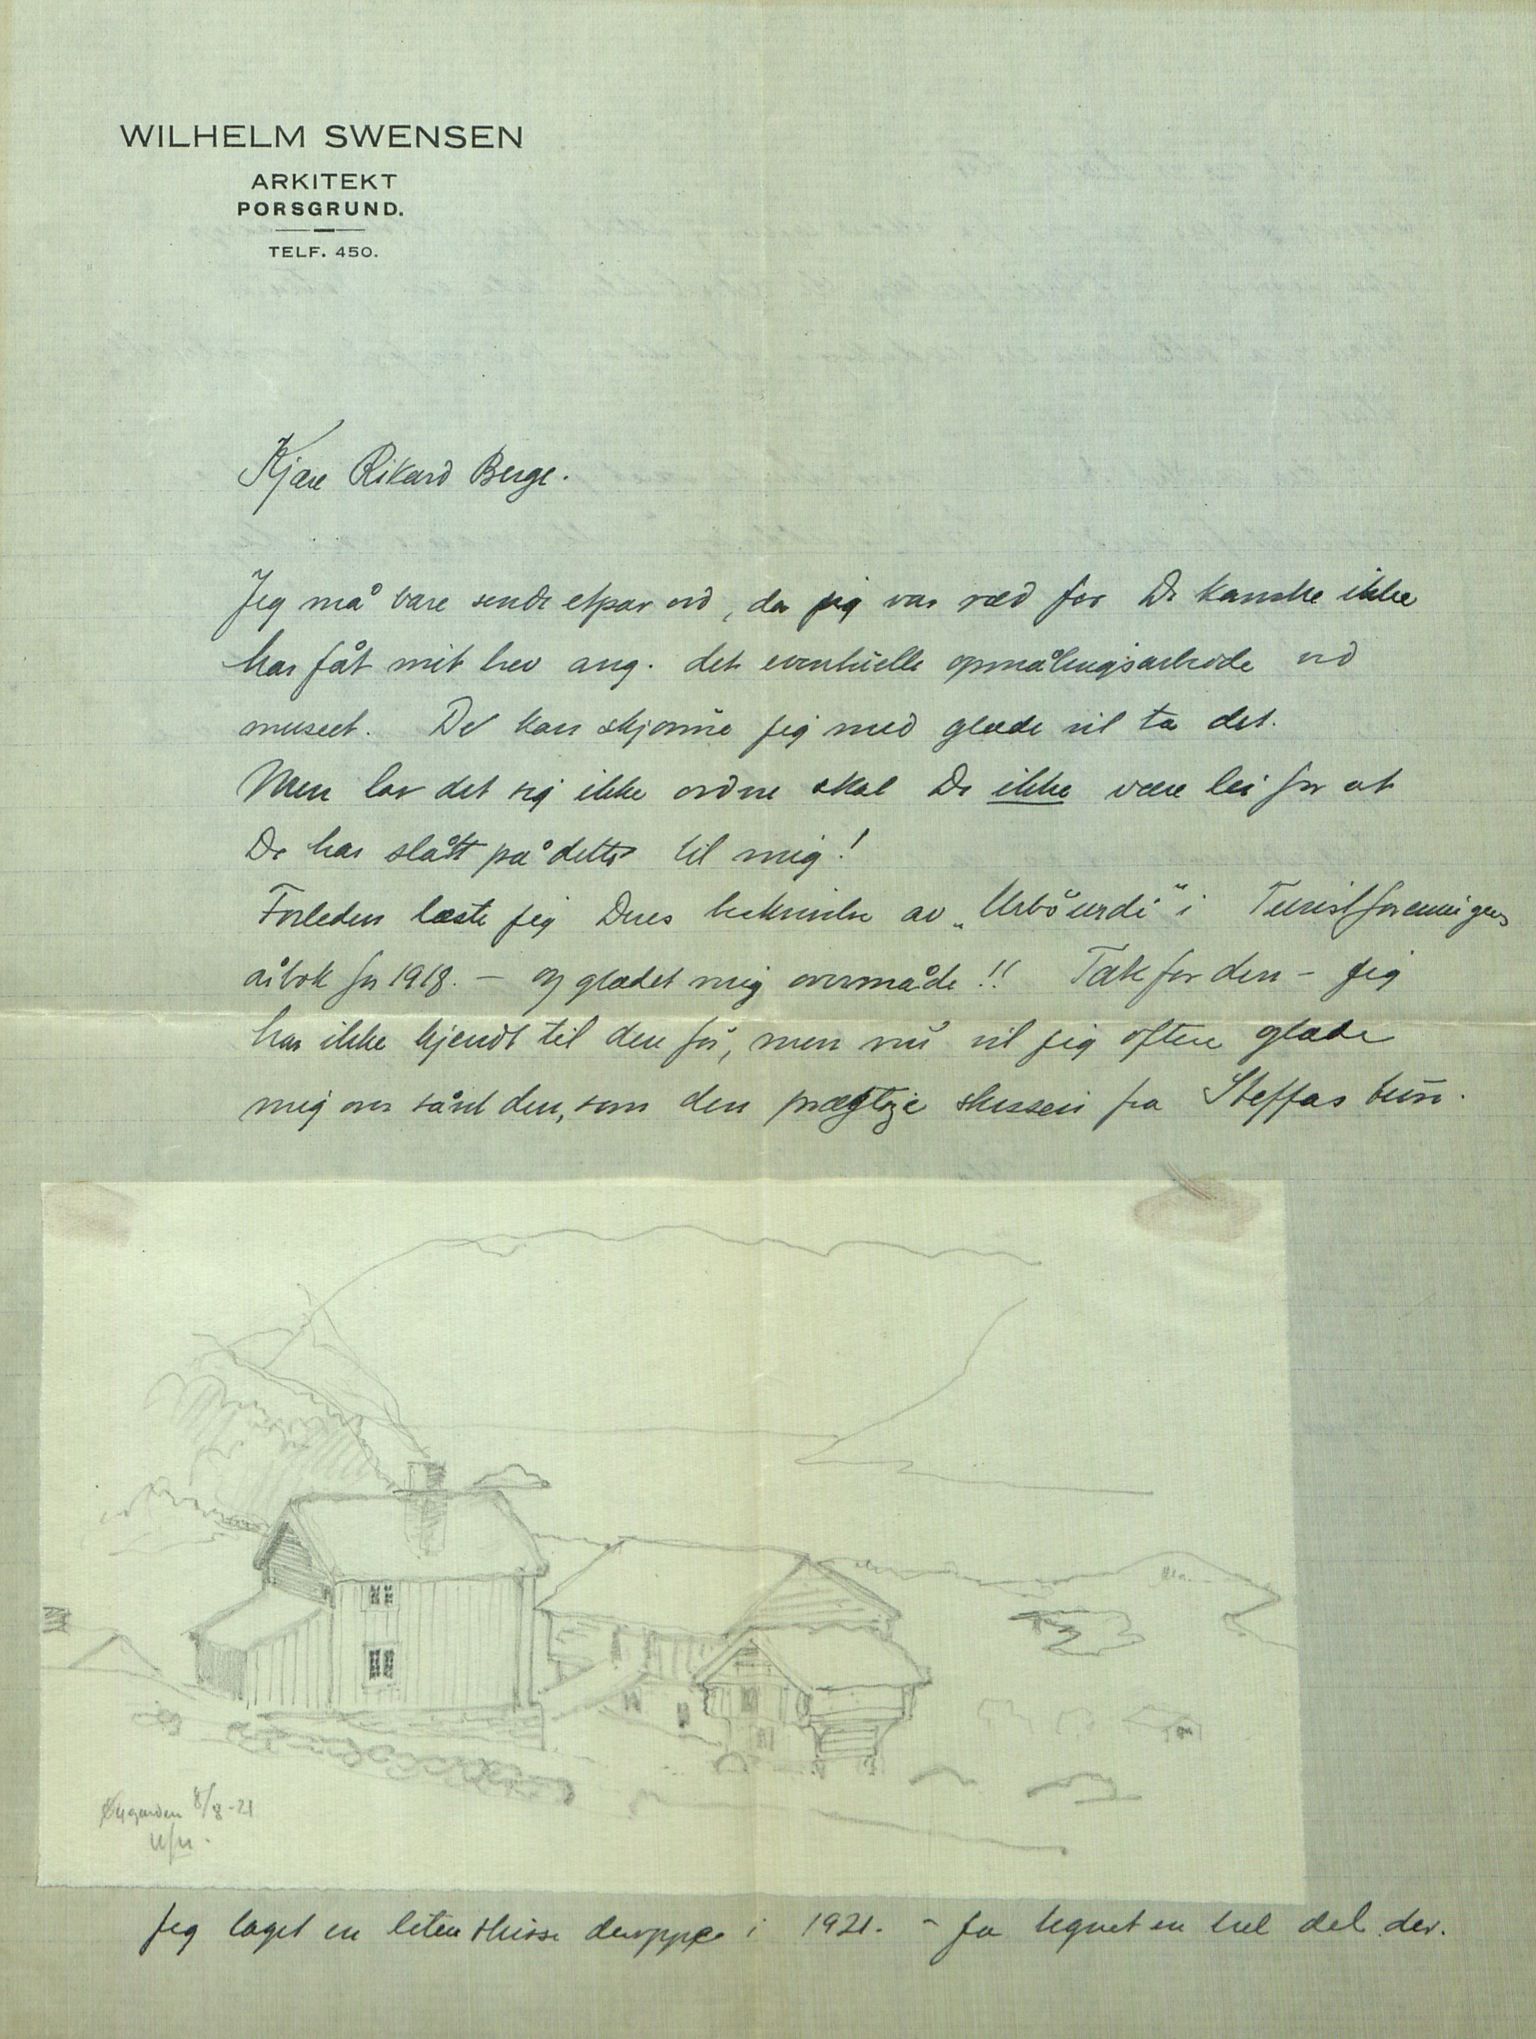 WILHELM SWENSEN
ARKITEKT
PORSGRUND.
TELF. 450.
Kjære Rikard Berge.
Jeg må bare sende etpar ord, da jeg var ræd for De kanske ikke
har fåt mit brev ang. det eventuelle opmålingsarbeide ved
museet. De kan skjønne jeg med glæde vil ta det.
Men lar det sig ikke ordne skal De ikke være lei for at
De har slått på dette til mig!
Forleden læste jeg Deres beskrivelse av „Urbøurdi" i Turistforeningens
årbok for 1918. – og glædet mig overmåde!! Tak for den – jeg
har ikke kjendt til den før, men nu vil jeg oftere glæde
mig over såvel den, som den prægtige skissen fra Steffas tun.
Øygarden 8/8-21
Jeg laget en liten skisse deroppe i 1921. – ja tegnet en hel del der.